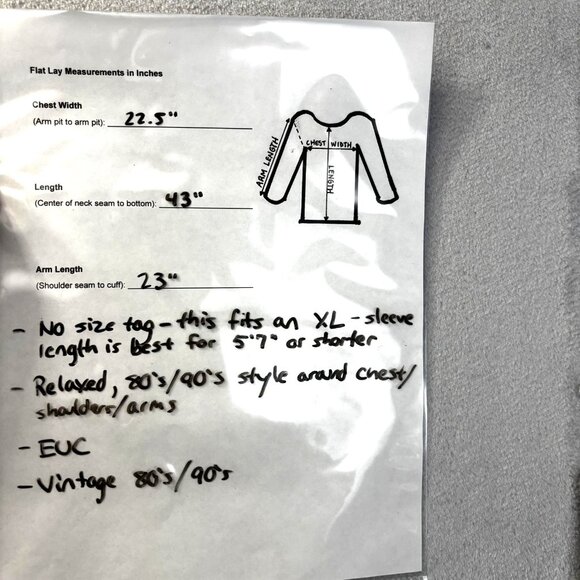 Flat Lay Measurements in Inches
Chest Width
(Arm pit to arm pit): 22.5"
Length
(Center of neck seam to bottom): 43"
Arm Length
(Shoulder seam to cuff): 23"
ARM LENGTH
CHEST WIDTH
LENGTH
- No size tag - this fits an XL - sleeve
length is best for 5'7" or shorter
- Relaxed, 80's/90's style around chest/
shoulders/arms
- EUC
- Vintage 80's/90's